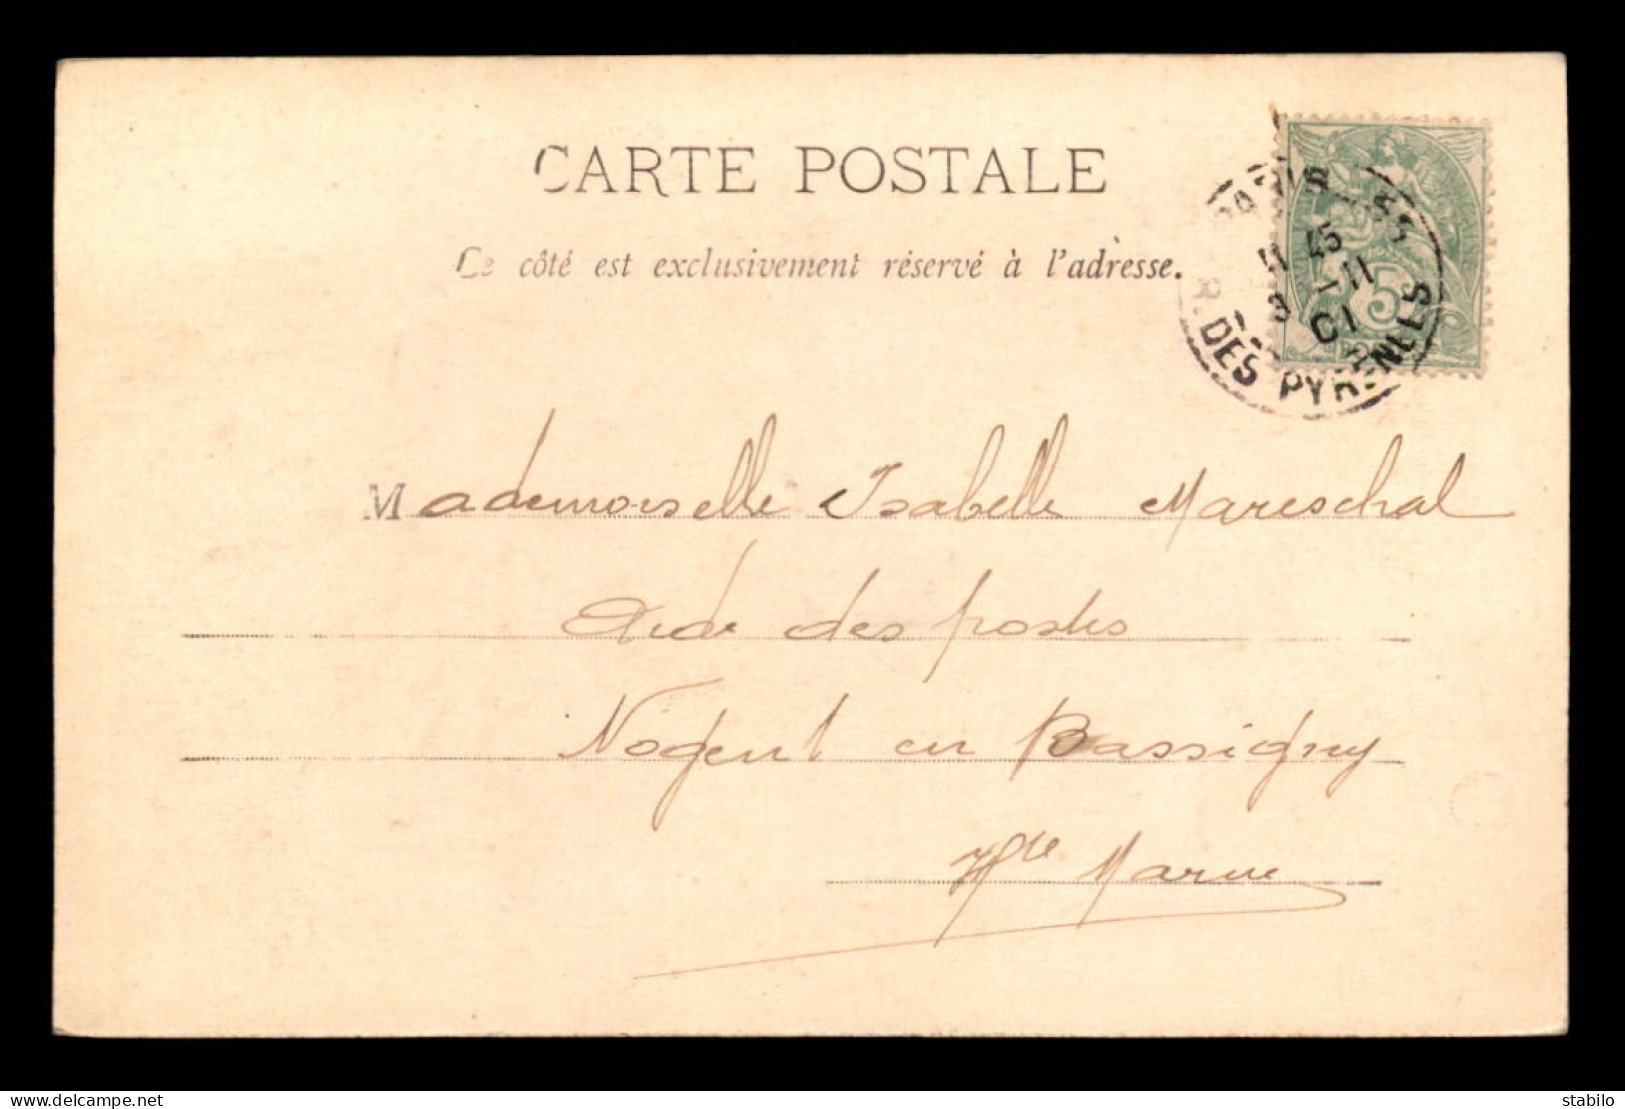 CARTE POSTALE
Ce côté est exclusivement réservé à l'adresse.
PARIS 53
11 45
3 -11
01
R. DES PYRENEES
5
Mademoiselle Isabelle Mareschal
Aide des postes
Nogent en Bassigny
Hte Marne
www.delcampe.net
stabilo